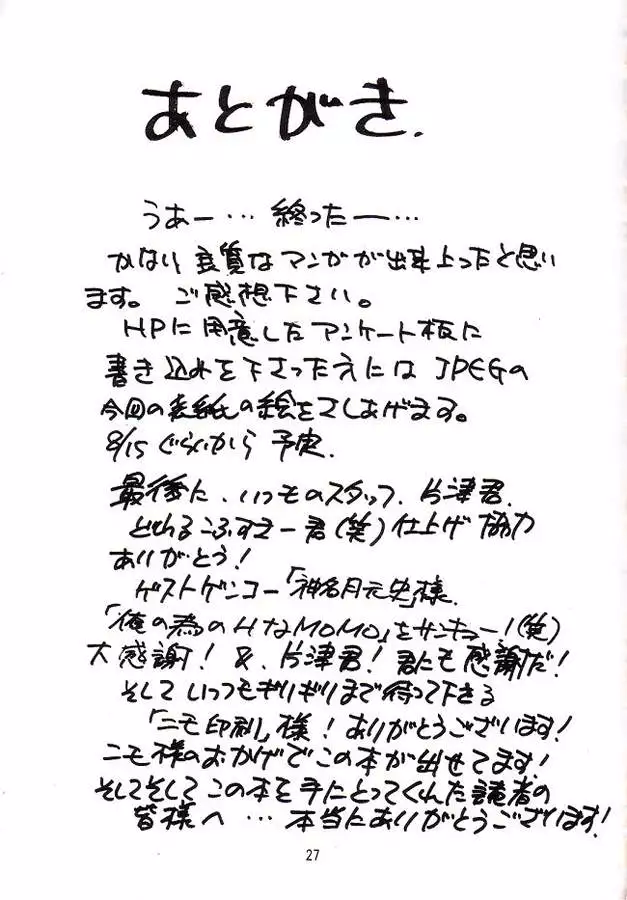 あとがき.
うあー…終ったー…
かなり良質なマンガが出来上ったと思い
ます。ご感想下さい。
HPに用意したアンケート板に
書き込みを下さった方には JPEGの
今回の表紙の絵をさしあげます。
8/15ぐらいから 予定.
最後に、いつものスタッフ、片津君.
君(笑)仕上げ協力
ありがとう!
ゲストゲンコー「神名月元史」様.
「俺の為のHなMOMO」をサンキュー!(笑)
大感謝! &、片津君! 君にも感謝だ!
そして いつもギリギリまで待って下さる
「ニモ印刷」様! ありがとうございます!
ニモ様のおかげでこの本が出せてます!
そしてそして この本を手にとってくれた読者の
皆様へ…本当にありがとうございます!
27